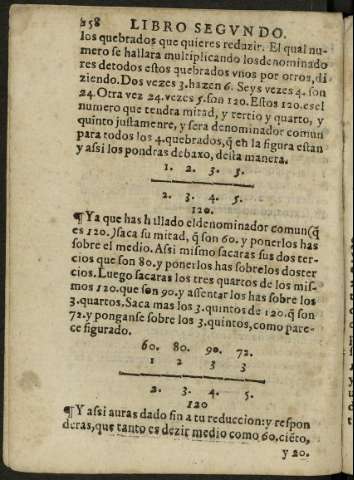 258 LIBRO SEGVNDO.
los quebrados que quieres reduzir. El qual nu-
mero se hallara multiplicando losdenominado
res detodos estos quebrados vnos por otros, di
ziendo. Dos vezes 3. hazen 6. Seys vezes 4. son
24. Otra vez 24. vezes 5. son 120. Estos 120. es el
numero que tendra mitad, y tertio y quarto, y
quinto justamenre, y sera denominador comun
para todos los 4. quebrados, q̃ en la figura estan
y assi los pondras debaxo, desta manera.
1. 2. 3. 3.
2. 3. 4. 5.
120.
¶ Ya que has hallado eldenominador comun (q̃
es 120.) saca su mitad, q̃ son 60. y ponerlos has
sobre el medio. Assi mismo sacaras sus dos ter-
cios que son 80. y ponerlos has sobrelos dos ter
cios. Luego sacaras los tres quartos de los mis-
mos 120. que son 90. y assentar los has sobre los
3. quartos. Saca mas los 3. quintos de 120. q̃ son
72. y ponganse sobre los 3. quintos, como pare-
ce figurado.
60. 80. 90. 72.
1 2 3 3
2. 3. 4. 5.
120
¶ Y assi auras dado fin a tu reduccion: y respon
deras, que tanto es dezir medio como 60. ciẽto,
y 20.